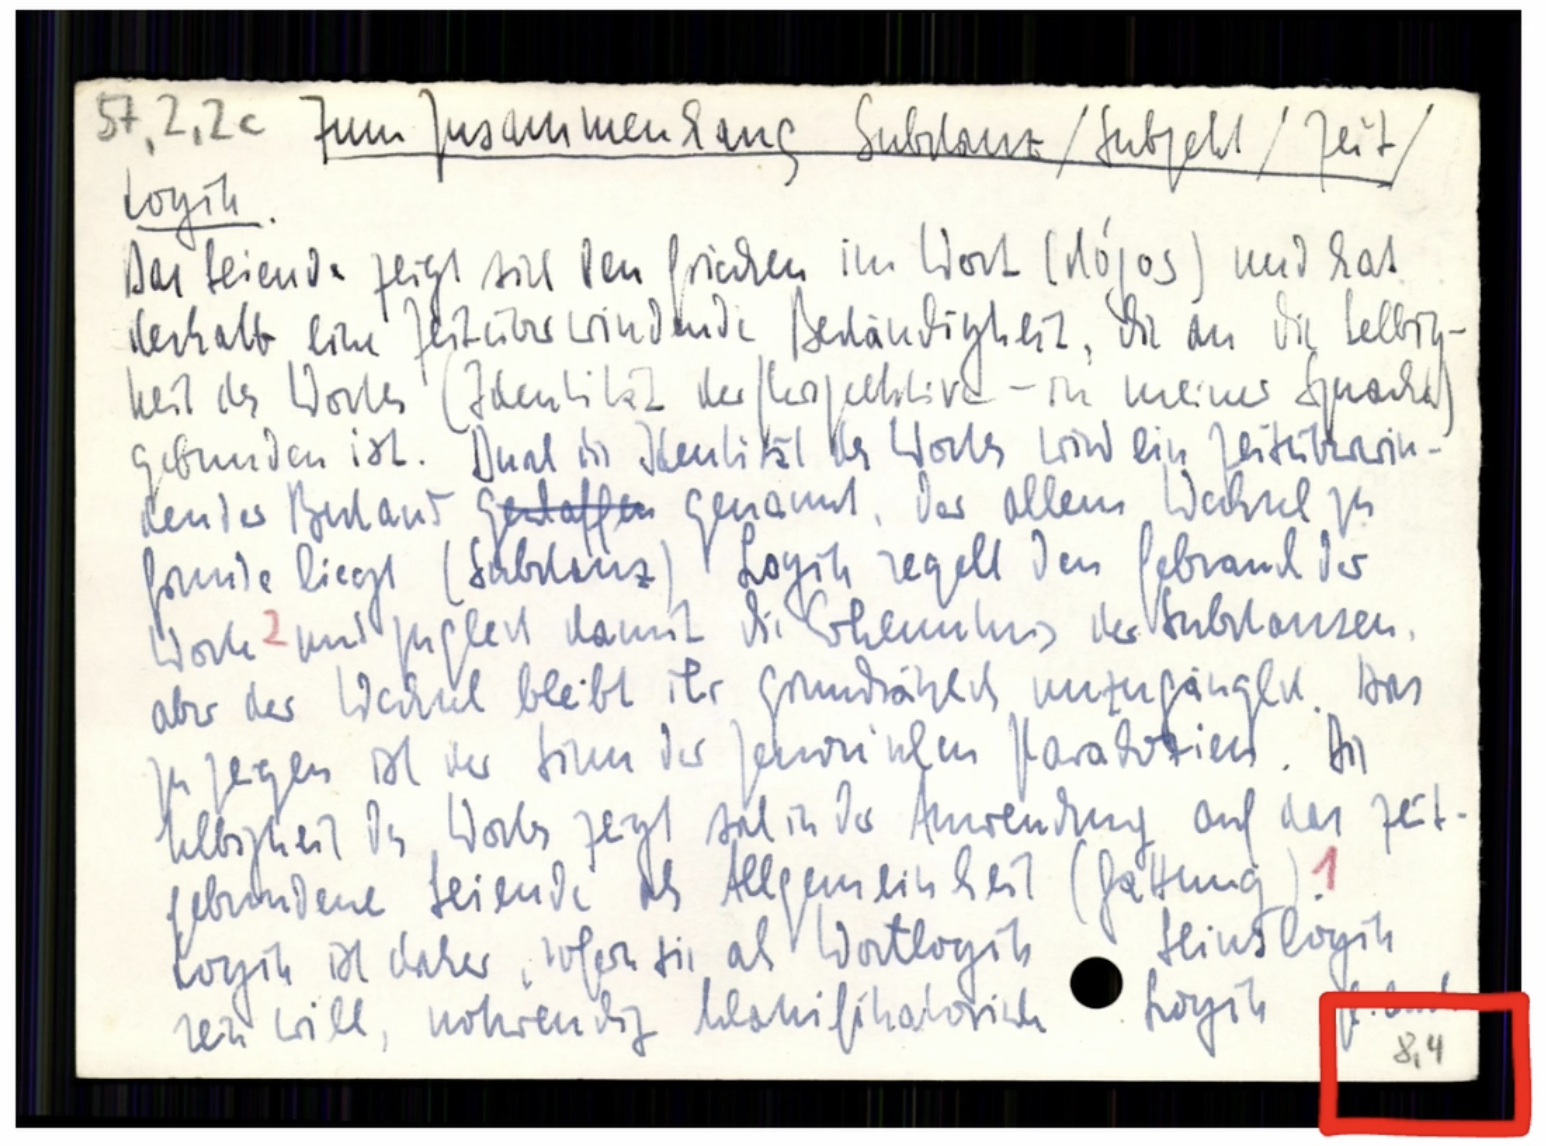 57,2,2c Zum Zusammenhang Substanz / Subjekt / Zeit /
Logik.
Das Seiende zeigt sich den Griechen im Wort (lógos) und hat
deshalb eine zeitüberwindende Beständigkeit, die an die Selbig-
keit des Wortes (Identität der Perspektive – in meiner Sprache)
gebunden ist. Durch die Identität des Wortes wird ein zeitüberwin-
dender Bestand geschaffen genannt, der allem Wechsel zu
Grunde liegt (Substanz) Logik regelt den Gebrauch der
Worte 2 und zugleich damit die Erkenntnis der Substanzen,
aber der Wechsel bleibt ihr grundsätzlich unzugänglich. Das
zu zeigen ist der Sinn der zenonischen Paradoxien. Die
Selbigkeit des Wortes zeigt sich in der Anwendung auf das zeit-
gebundene Seiende als Allgemeinheit (Gattung) 1
Logik ist daher, sofern sie als Wortlogik Seinslogik
sein will, notwendig klassifikatorische Logik
8,4